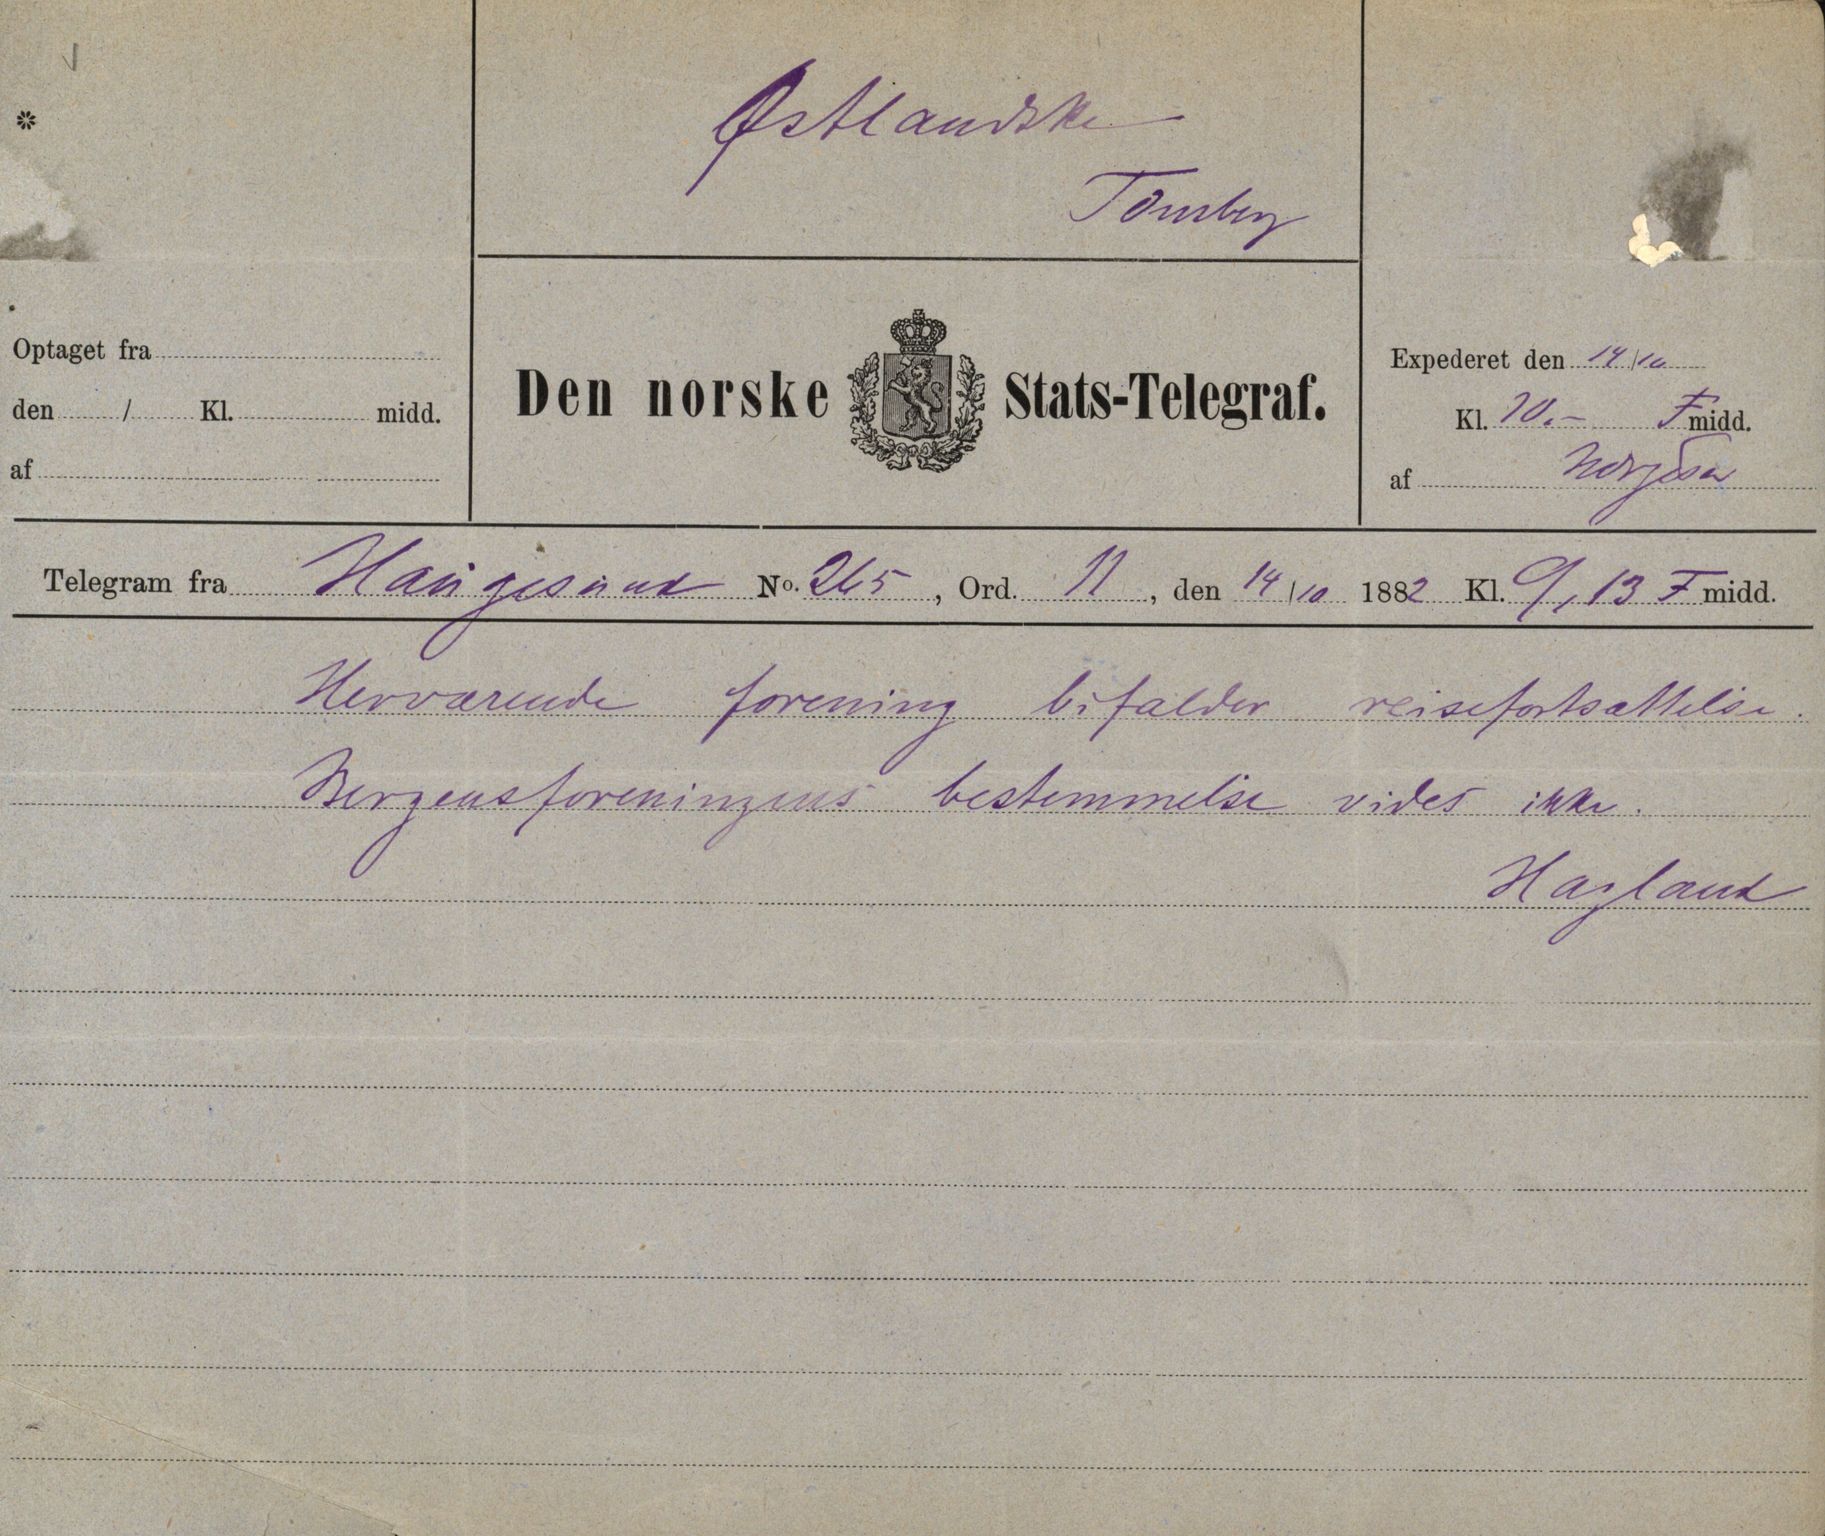 Østlandske
Tønsberg
Optaget fra
den / Kl. midd.
af
Den norske Stats-Telegraf.
Expederet den 14/10
Kl. 10.- F midd.
af
Telegram fra Haugesund No. 265, Ord. 11, den 14/10 1882 Kl. 9,13 F midd.
Herværende forening bifalder reisefortsættelse.
Bergensforeningens bestemmelse vides ikke.
Hagland